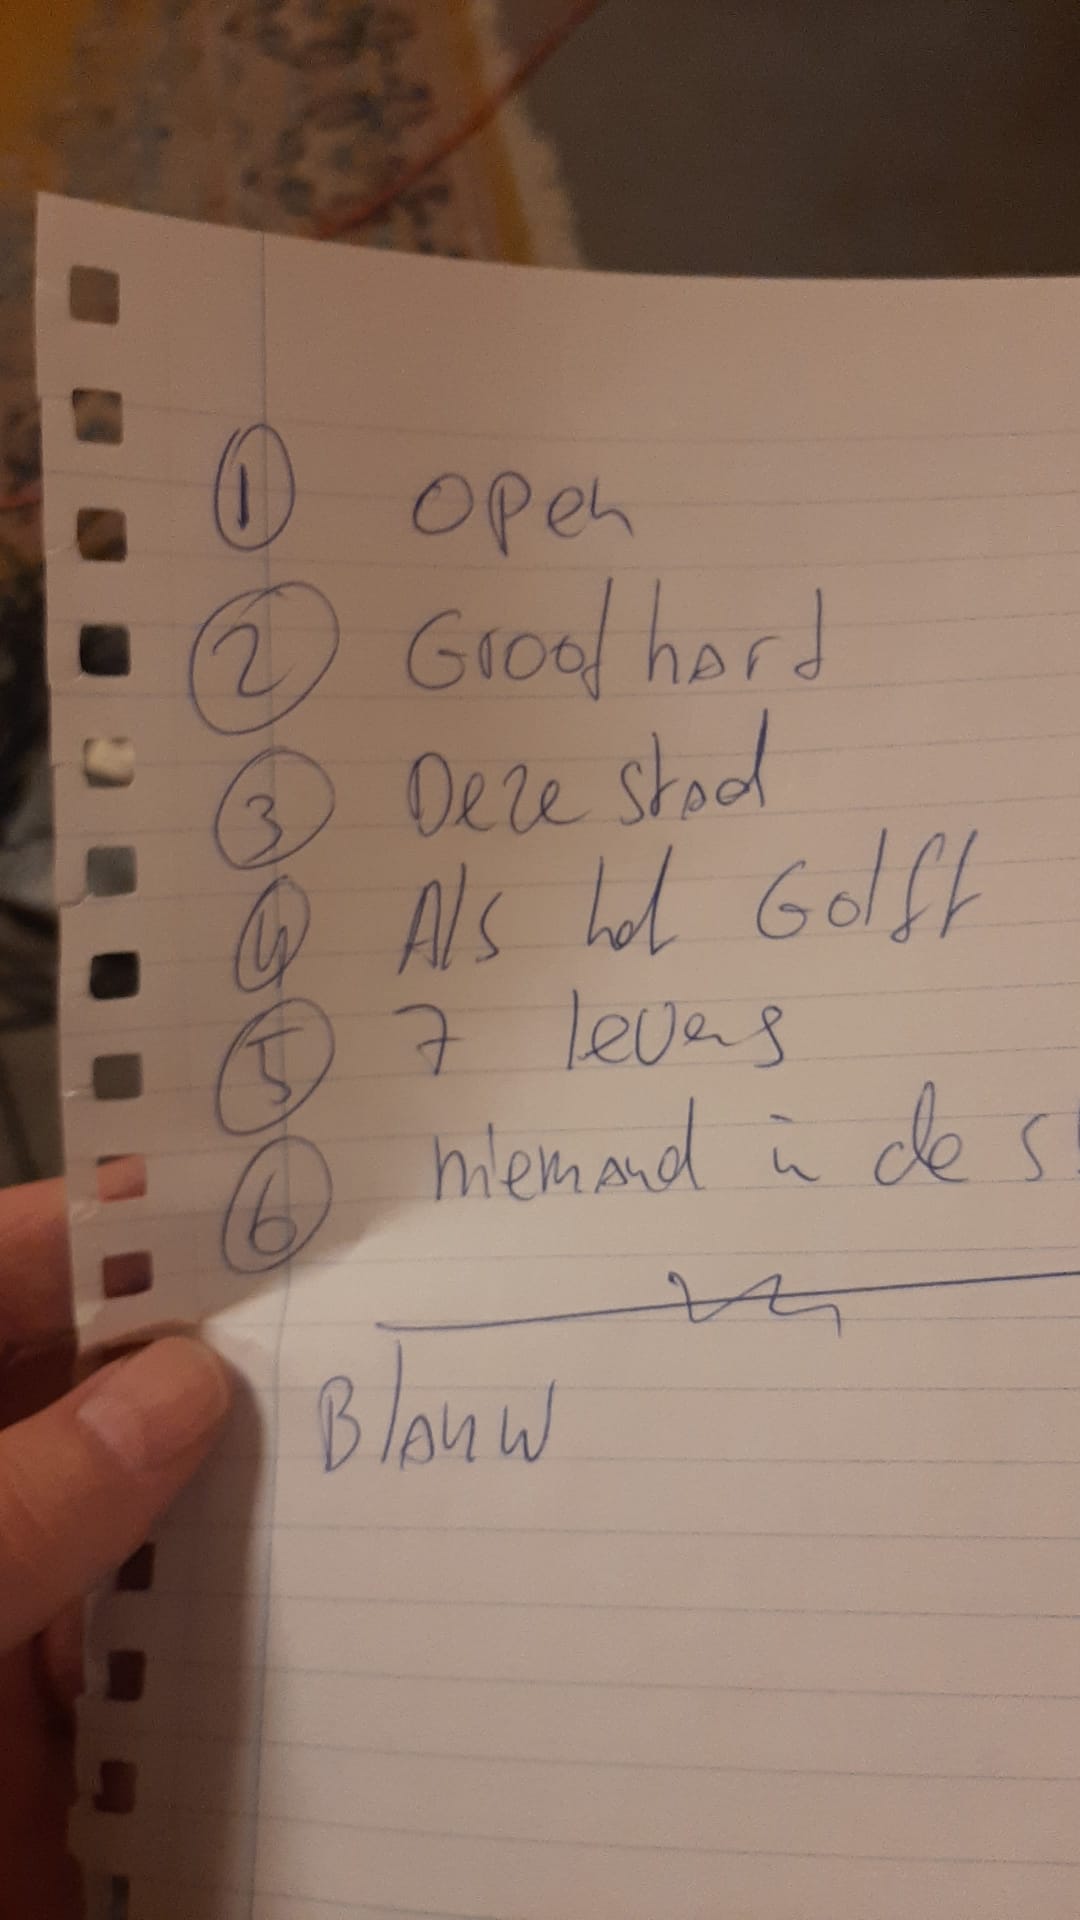 ① Open
② Groot hart
③ Deze stad
④ Als het Golft
⑤ 7 levens
⑥ niemand in de
Blauw